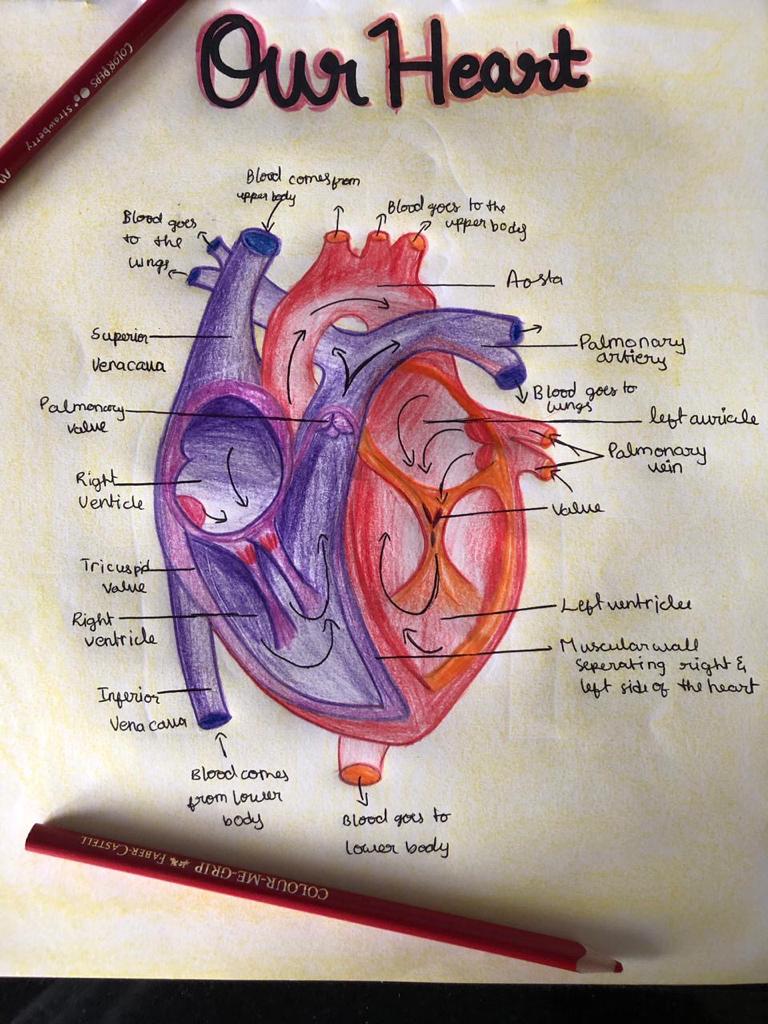 Our Heart
COLOR PEPS Strawberry
Blood comes from
upper body
Blood goes to the
upper body
Blood goes
to the
lungs
Aosta
Superior
Venacaua
Palmonary
artiery
Blood goes to
lungs
Palmonary
value
left auricule
Palmonary
vein
Right
Ventícle
value
Tricuspid
value
Left ventricles
Right
ventricle
Muscular wall
seperating right &
left side of the heart
Inferior
Vena caua
Blood comes
from lower
body
Blood goes to
lower body
COLOUR-ME-GRIP FABER-CASTELL